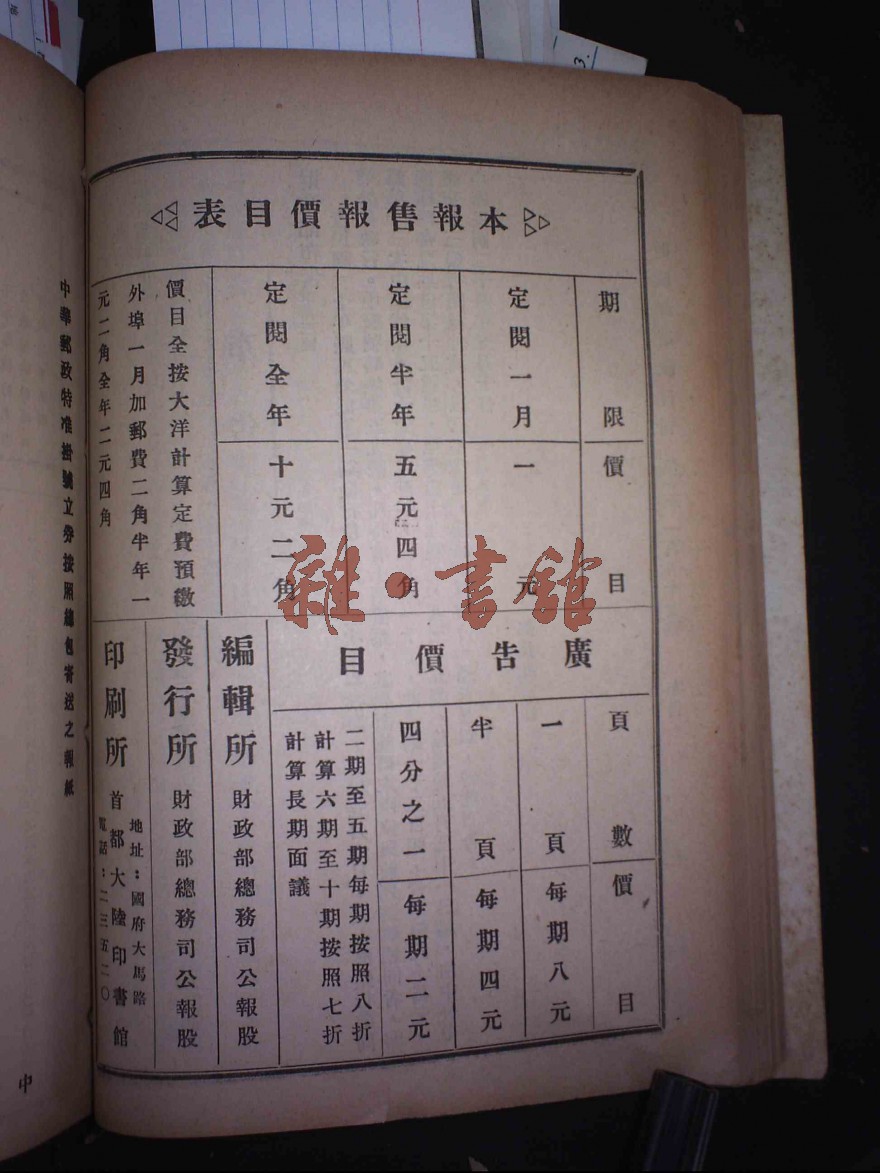 本報售報價目表
期限
價目
定閱一月
一元
定閱半年
五元四角
定閱全年
十元二角
價目全按大洋計算定費預繳
外埠一月加郵費二角半年一
元二角全年二元四角
廣告價目
頁數
價目
一頁
每期八元
半頁
每期四元
四分之一
每期二元
二期至五期每期按照八折
計算六期至十期按照七折
計算長期面議
編輯所
財政部總務司公報股
發行所
財政部總務司公報股
印刷所
首都大陸印書館
地址：國府大馬路
電話：二三五二〇
中華郵政特准掛號立劵按照總包寄送之報紙
中
雜·書館
3.